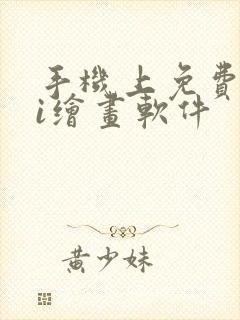 手機上免費
i繪畫軟件
黃少妹